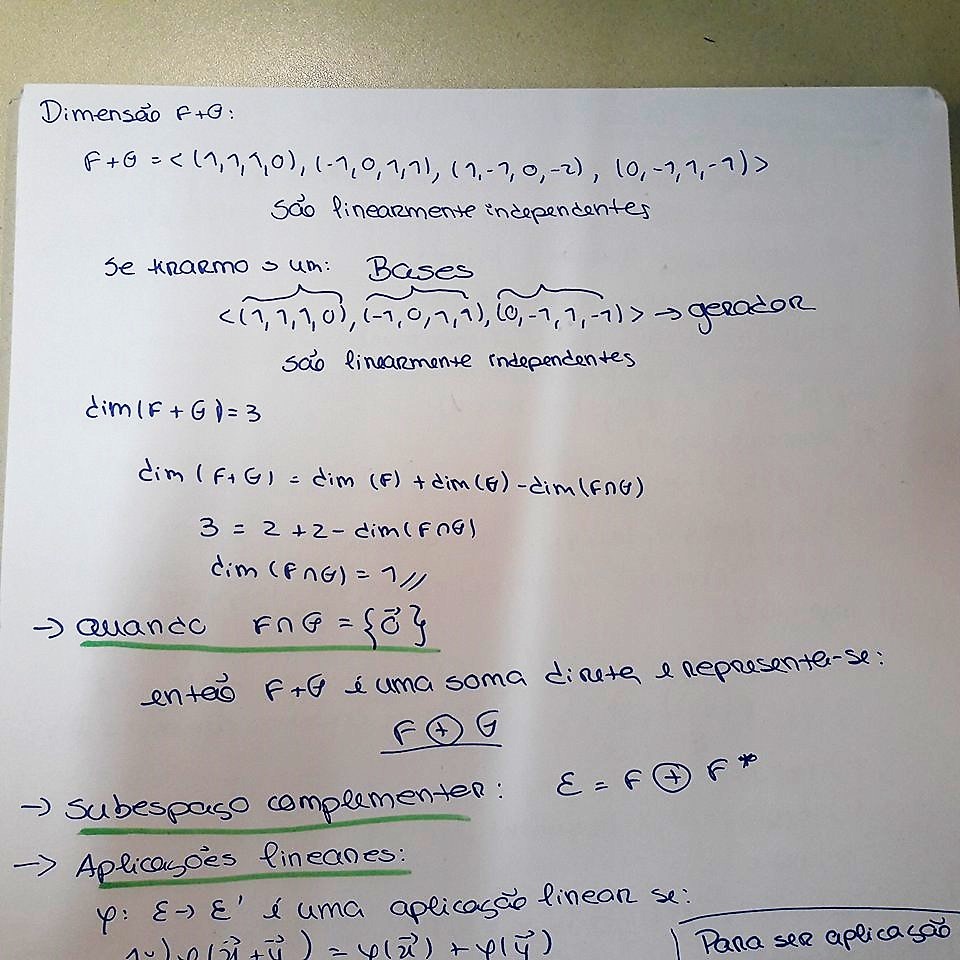 Dimensão F+G:
F+G = < (1,1,1,0), (-1,0,1,1), (1,-1,0,-2), (0,-1,1,-1) >
São linearmente independentes
Se tirarmos um: Bases
<(1,1,1,0), (-1,0,1,1), (0,-1,1,-1)> → gerador
são linearmente independentes
dim(F+G)=3
dim(F+G) = dim(F) + dim(G) - dim(F∩G)
3 = 2+2 - dim(F∩G)
dim(F∩G) = 1//
→ quando F∩G = {0⃗}
então F+G é uma soma direta, e representa-se:
F ⊕ G
→ Subespaço complementar: E = F ⊕ F*
→ Aplicações lineares:
φ: E → E' é uma aplicação linear se:
φ(x⃗+y⃗) = φ(x⃗) + φ(y⃗)
Para ser aplicação